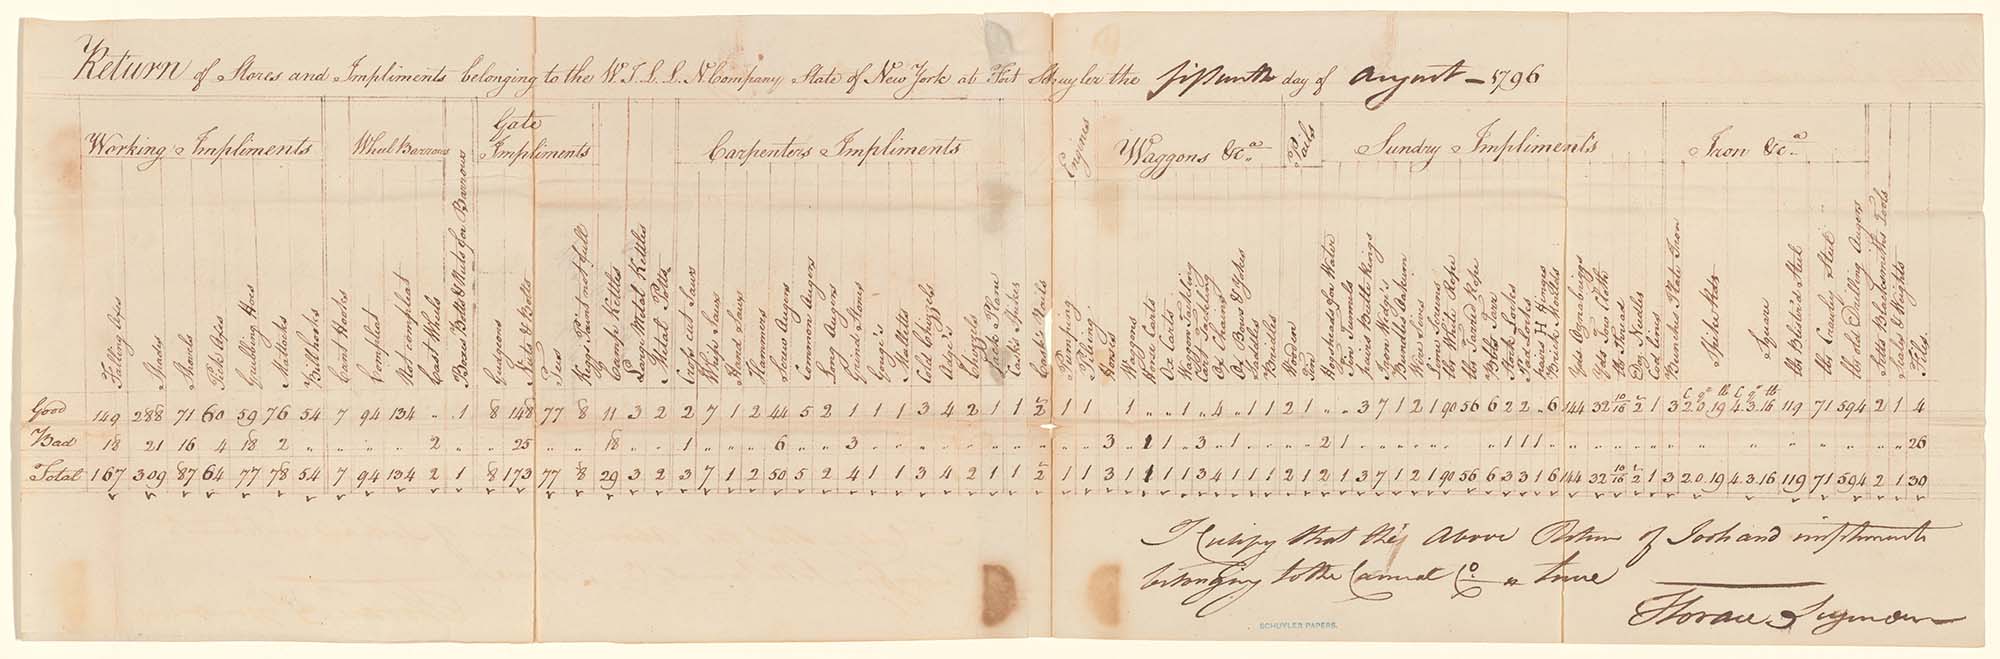 Return of Stores and Impliments belonging to the W. I. L. L. N Company State of New York at Fort Schuyler the fifteenth day of August – 1796
Working Impliments
Wheel Barrows
Gate Impliments
Carpenters Impliments
Engines
Waggons &c.a
Pails
Sundry Impliments
Iron &c.a
Falling Axes
Spades
Shovels
Pick Axes
Grubbing Hoes
Mattocks
Billhooks
Cant Hooks
Compleat
Not compleat
Cast Wheels
Boxes Bolts & Nuts for Barrows
Gudgeons
Nuts & Bolts
Tees
Kegs Paint not full
Camp Kettles
Potts
Cross cut Saws
Whip Saws
Hand Saws
Hammers
Screw Augers
Common Augers
Long Augers
Grind Stones
Malletts
Cold Chizzels
Adze's
Chizzels
Plane
Casks Spikes
Casks Nails
Pumping
Pileing
Horses
Waggons
Horse Carts
Ox Carts
Waggon Tackling
Cart Tackling
Ox Chains
Ox Bows & Yokes
Saddles
Bridles
Wooden
Tin
Hogsheads for Water
Tin Tunnels
pairs Beetle Rings
Iron Wedges
Bundles
lb White Rope
lb Tared Rope
Bbls Tar
Stock Locks
Pad Locks
pairs H Hinges
Brick Moulds
Yds Oznabrigs
Yds Tow Cloth
lb Thread
Doz Needles
Cod Lines
Bunches Plate Iron
Spike Rods
Square
lb Blister'd Steel
lb Crawley Steel
lb old Drilling Augers
Setts Blacksmiths Tools
Scales & Weights
Files
C q lb C q lb
Good 149 288 71 60 59 76 54 7 94 134 " 1 8 148 77 8 11 3 2 2 7 1 2 44 5 2 1 1 1 3 4 2 1 1 1/2 1 1 " 1 " " 1 " 4 " 1 1 2 1 " " 3 7 1 2 1 90 56 6 2 2 " 6 144 32 10/16 1/2 1 3 2.0.19 4.3.16 119 71 594 2 1 4
Bad 18 21 16 4 18 2 " " " " 2 " " 25 " " 18 " " 1 " " " 6 " " 3 " " " " " " " " " " 3 " 1 1 " 3 " 1 " " " " 2 1 " " " " " " " " 1 1 1 " " " " " " " " " " " " " " 26
Total 167 309 87 64 77 78 54 7 94 134 2 1 8 173 77 8 29 3 2 3 7 1 2 50 5 2 4 1 1 3 4 2 1 1 1/2 1 1 3 1 1 1 1 3 4 1 1 1 2 1 2 1 3 7 1 2 1 90 56 6 3 3 1 6 144 32 10/16 1/2 1 3 2.0.19 4.3.16 119 71 594 2 1 30
I Certify that the above Return of Tools and impliments
belonging to the Cannal Co. is true
Horace Seymour
SCHUYLER PAPERS.